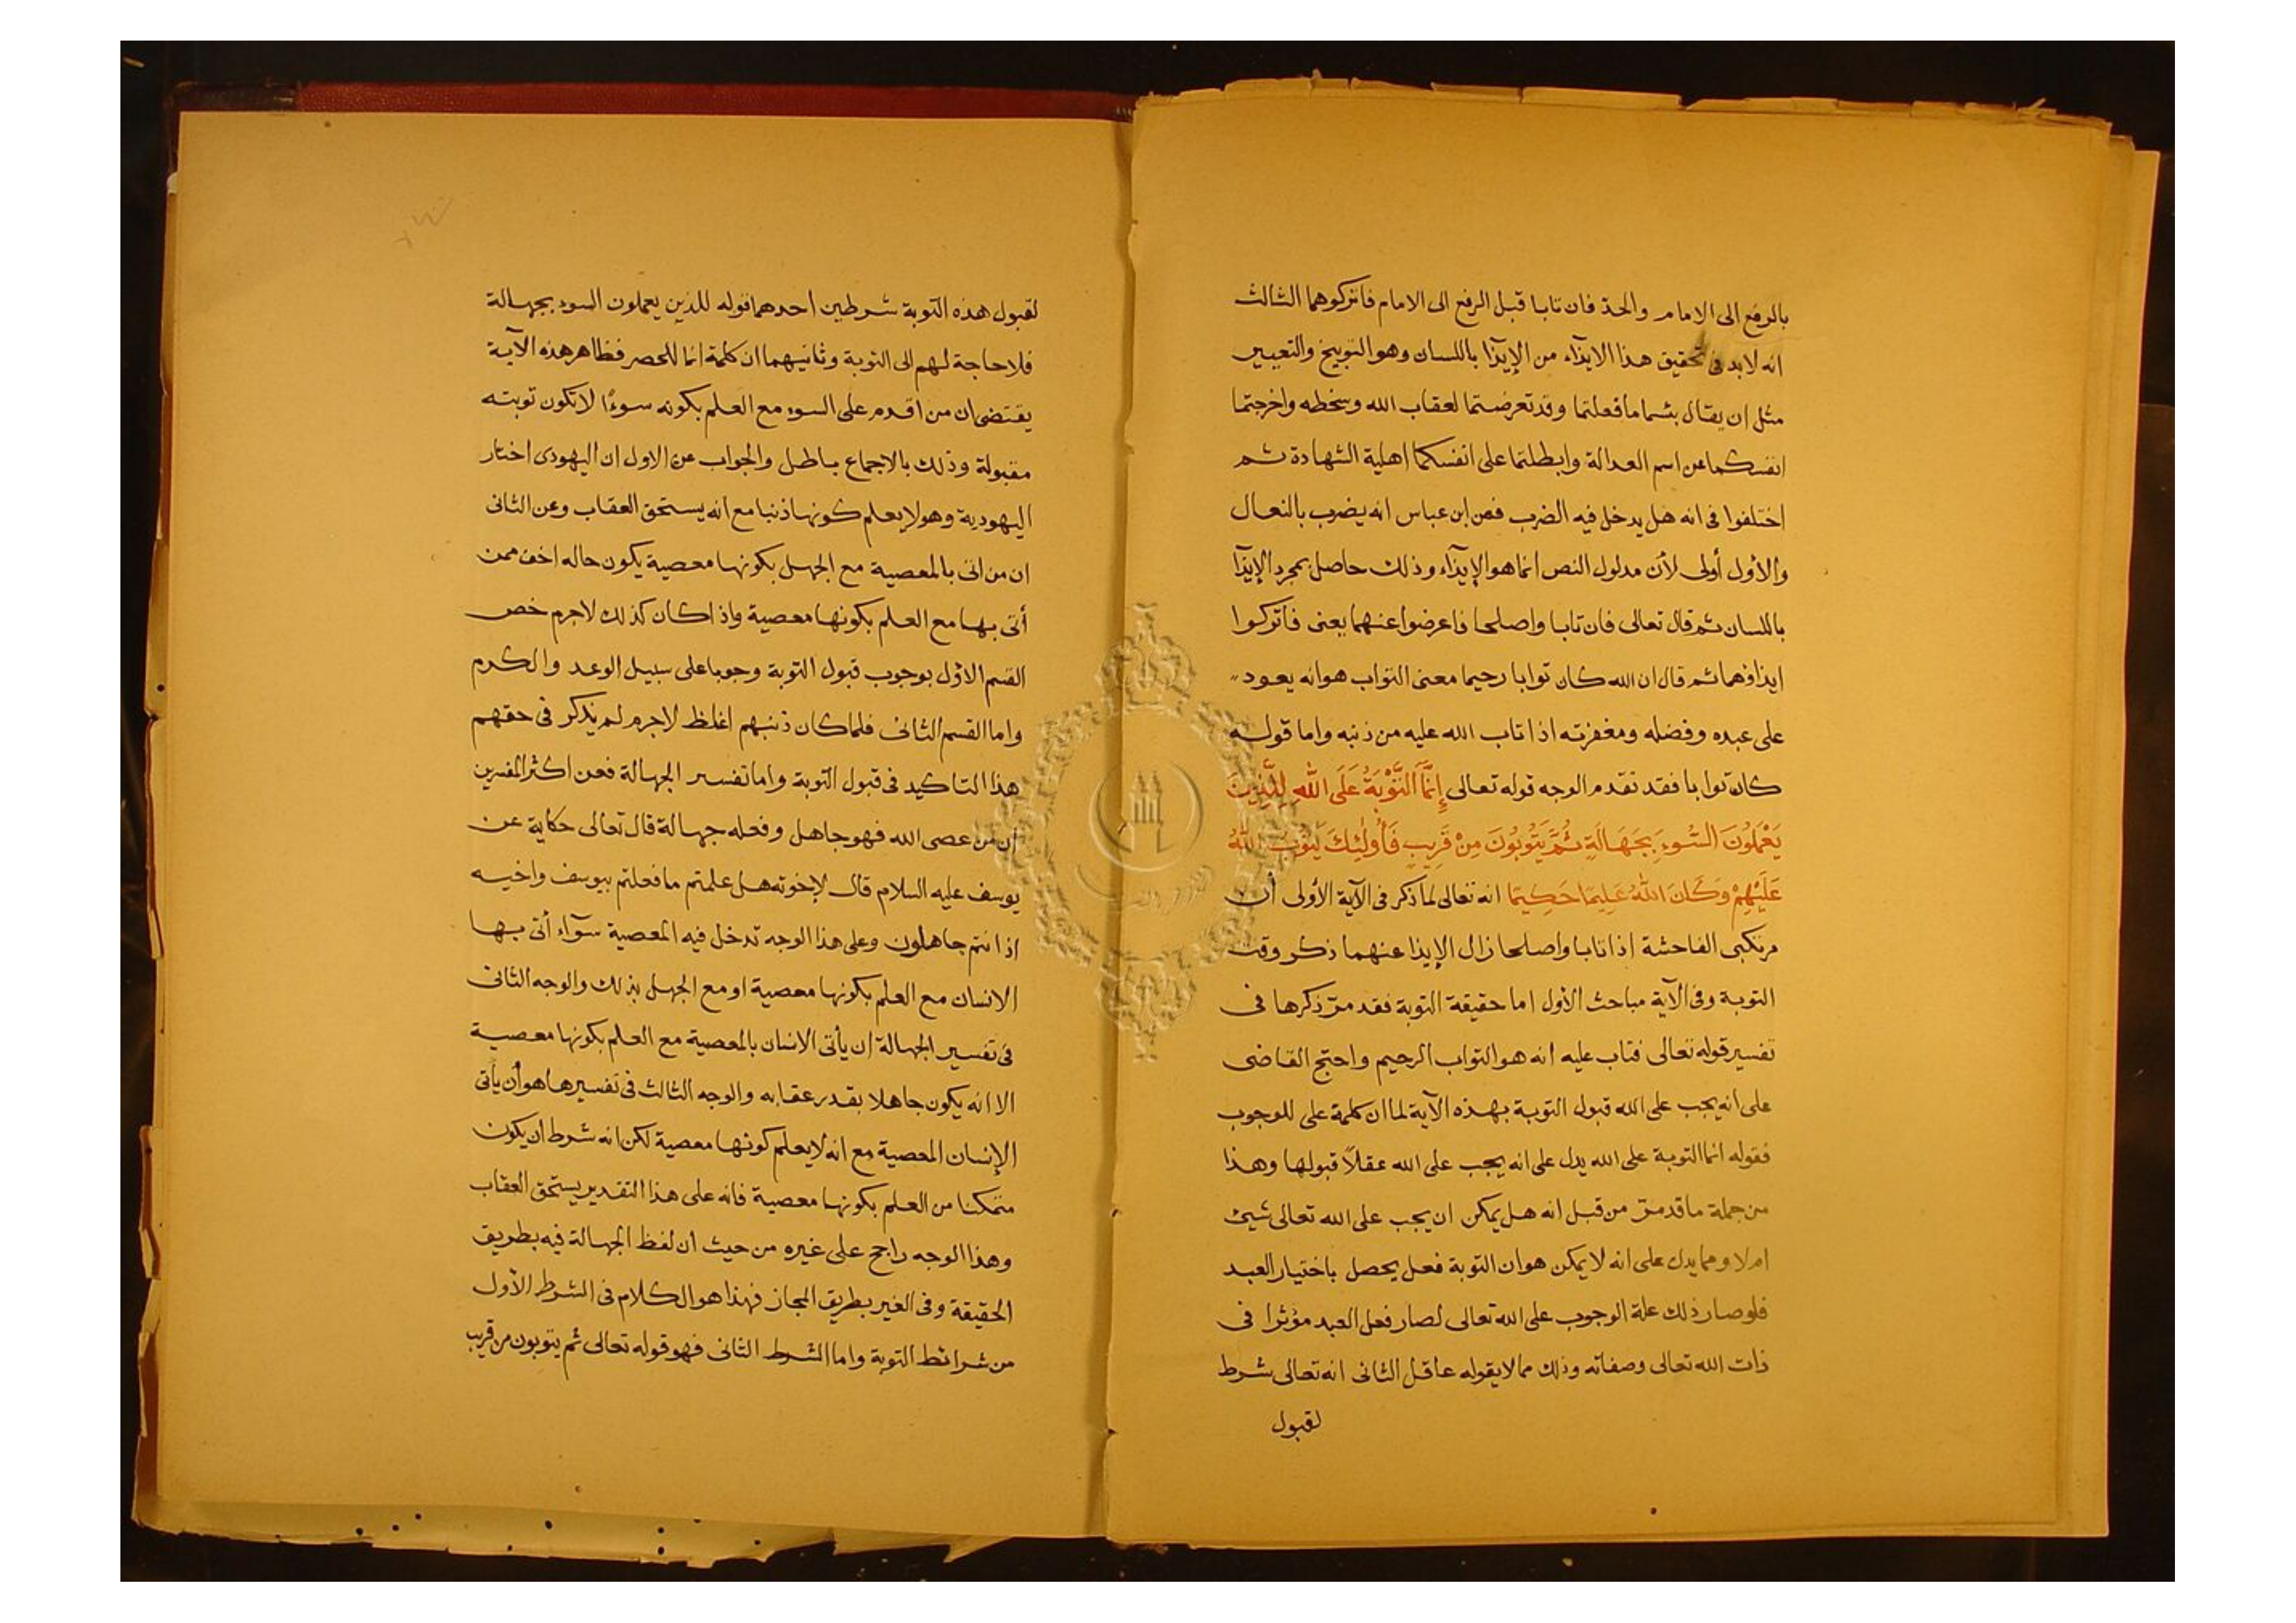 بالرفع الى الامام والحد فان تابا قبل الرفع الى الامام فاتركوهما الثالث
انه لابد فى تحقيق هذا الايذآء من الإيذآ باللسان وهو التوبيخ والتعيير
مثل ان يقال بئسما ما فعلتما وقد تعرضتما لعقاب الله وسخطه واخرجتما
انفسكما عن اسم العدالة وابطلتما على انفسكما اهلية الشهادة ثم
اختلفوا فى انه هل يدخل فيه الضرب فعن ابن عباس انه يضرب بالنعال
والأول أولى لأن مدلول النص انما هو الإيذآء وذلك حاصل بمجرد الإيذآ
باللسان ثم قال تعالى فان تابا واصلحا فاعرضوا عنهما يعنى فاتركوا
ايذاؤهما ثم قال ان الله كان توابا رحيما معنى التواب هو انه يعود
على عبده وفضله ومغفرته اذا تاب الله عليه من ذنبه واما قوله
كان توابا فقد تقدم الوجه قوله تعالى إِنَّمَا التَّوْبَةُ عَلَى اللّٰهِ لِلَّذِينَ
يَعْمَلُونَ السُّوءَ بِجَهَالَةٍ ثُمَّ يَتُوبُونَ مِنْ قَرِيبٍ فَأُولٰئِكَ يَتُوبُ اللّٰهُ
عَلَيْهِمْ وَكَانَ اللّٰهُ عَلِيمًا حَكِيمًا انه تعالى لما ذكر فى الآية الأولى أن
مرتكبى الفاحشة إذا تابا واصلحا زال الإيذا عنهما ذكر وقت
التوبة وفى الآية مباحث الأول اما حقيقة التوبة فقد مرّ ذكرها فى
تفسير قوله تعالى فتاب عليه انه هو التواب الرحيم واحتج القاضى
على انه يجب على الله قبول التوبة بهذه الآية لما ان كلمة على للوجوب
فقوله انما التوبة على الله يدل على انه يجب على الله عقلاً قبولها وهذا
من جملة ما قد مرّ من قبل انه هل يمكن ان يجب على الله تعالى شيئ
ام لا ومما يدل على انه لا يمكن هو ان التوبة فعل يحصل باختيار العبد
فلو صار ذلك علة الوجوب على الله تعالى لصار فعل العبد مؤثرا فى
ذات الله تعالى وصفاته وذلك مما لا يقوله عاقل الثانى انه تعالى شرط
لقبول
لقبول هذه التوبة شرطين احدهما قوله للذين يعملون السوء بجهالة
فلا حاجة لهم الى التوبة وثانيهما ان كلمة انما للحصر فظاهر هذه الآية
يقتضى ان من اقدم على السوء مع العلم بكونه سوءًا لا تكون توبته
مقبولة وذلك بالاجماع باطل والجواب عن الاول ان اليهودى اختار
اليهودية وهو لا يعلم كونها ذنبا مع انه يستحق العقاب وعن الثانى
ان من اتى بالمعصية مع الجهل بكونها معصية يكون حاله اخف ممن
أتى بها مع العلم بكونها معصية واذا كان كذلك لاجرم خص
القسم الأوّل بوجوب قبول التوبة وجوبا على سبيل الوعد والكرم
واما القسم الثانى فلما كان ذنبهم اغلظ لاجرم لم يذكر فى حقهم
هذا التاكيد فى قبول التوبة واما تفسير الجهالة فعن اكثر المفسرين
أن من عصى الله فهو جاهل وفعله جهالة قال تعالى حكاية عن
يوسف عليه السلام قال لإخوته هل علمتم ما فعلتم بيوسف واخيه
اذ انتم جاهلون وعلى هذا الوجه تدخل فيه المعصية سوآء أتى بها
الانسان مع العلم بكونها معصية او مع الجهل بذلك والوجه الثانى
فى تفسير الجهالة إن يأتى الانسان بالمعصية مع العلم بكونها معصية
الا انه يكون جاهلا بقدر عقابه والوجه الثالث فى تفسيرها هو أن يأتى
الإنسان المعصية مع انه لا يعلم كونها معصية لكن انه شرط ان يكون
متمكنا من العلم بكونها معصية فانه على هذا التقدير يستحق العقاب
وهذا الوجه راجح على غيره من حيث ان لفظ الجهالة فيه بطريق
الحقيقة وفى الغير بطريق المجاز فهذا هو الكلام فى الشرط الأول
من شرائط التوبة واما الشرط الثانى فهو قوله تعالى ثم يتوبون من قريب